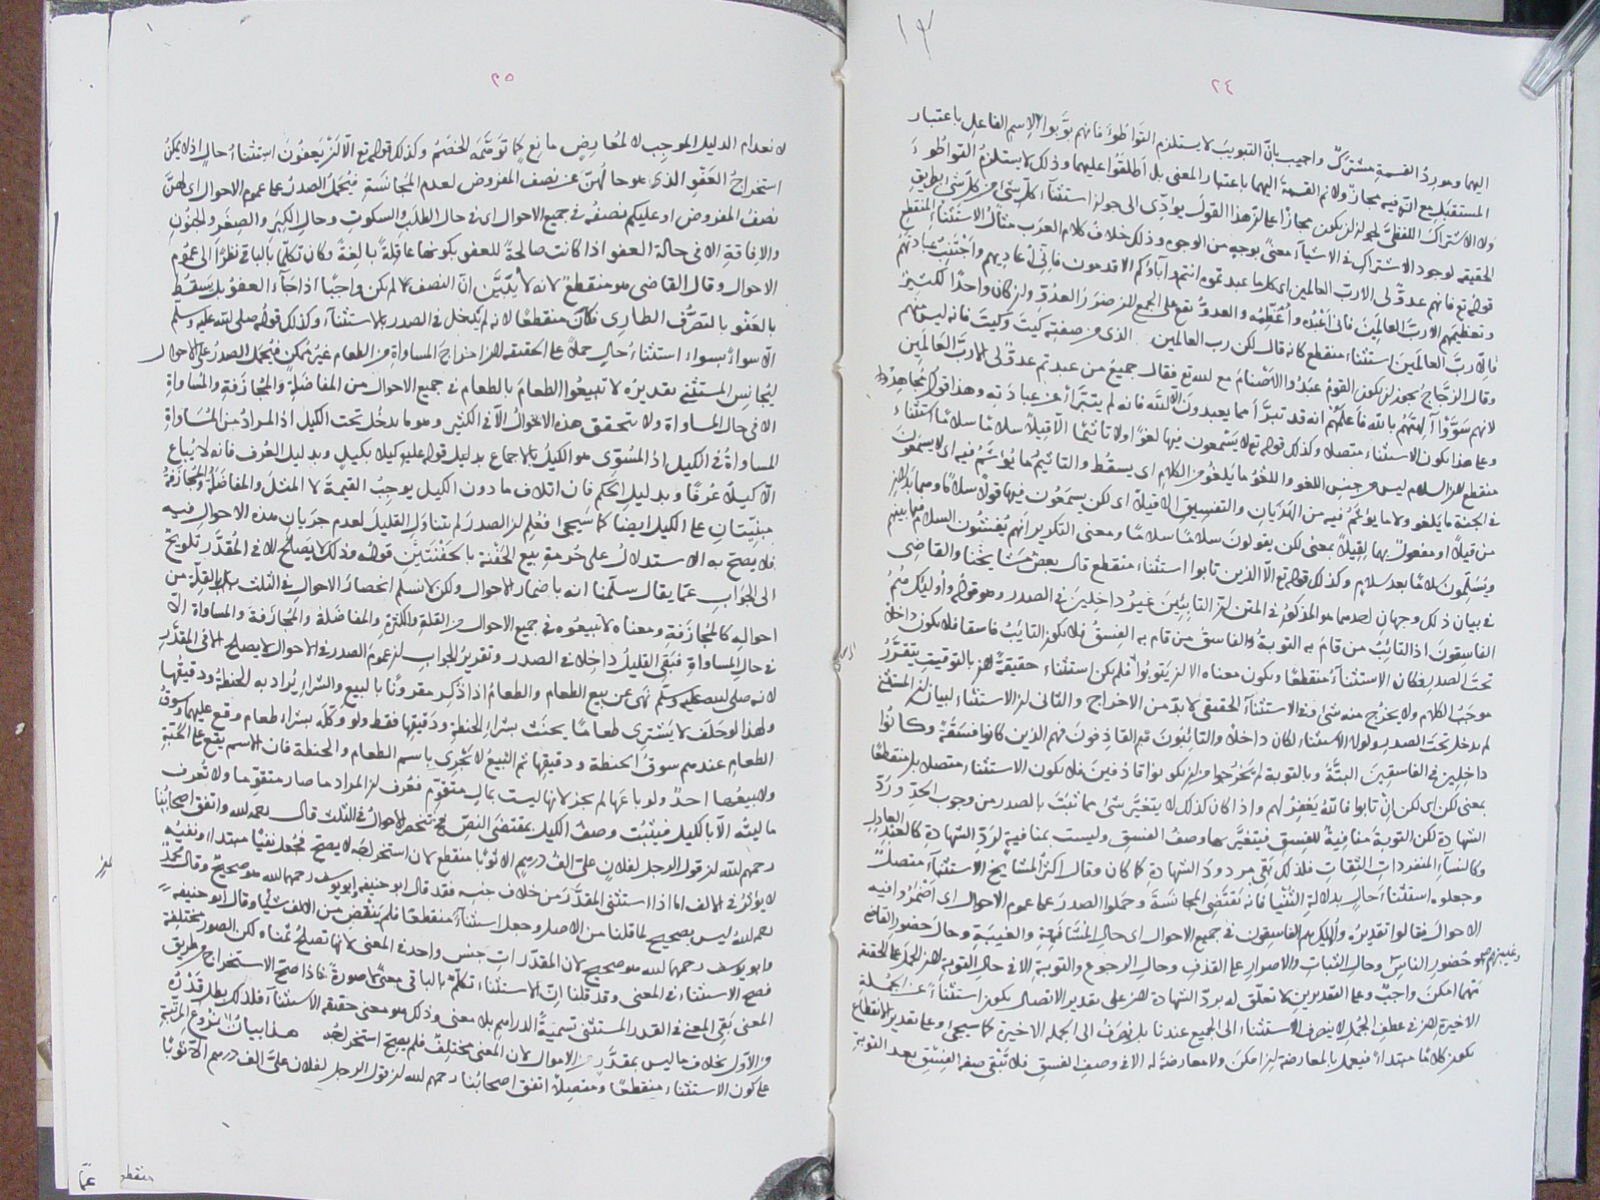 ٢٤
اليهما ومورد القسمة مشترك واجيب بانّ التبويب لا يستلزم التواطؤ فانهم بوّبوا الاسم الفاعل باعتبار
المستقبل مع انّه فيه مجاز ولانّم القسمة اليهما باعتبار المعنى بل اطلقوا عليهما وذلك لا يستلزم التواطؤ
ولا الاشتراك اللفظي لجواز ان يكون مجازا على ان هذا القول يؤدّى الى جواز استثناء كل شئ من كل شئ بطريق
الحقيقة لوجود الاشتراك في الاشياء معنى بوجه من الوجوه وذلك خلاف كلام العرب مثال الاستثناء المنقطع
قوله تع فانهم عدوّ لى الا ربّ العالمين اى كل ما عبدتموه انتم وآباؤكم الاقدمون فانى اعاديهم واجتنب عبادتهم
وتعظيمهم الا ربّ العالمين فانى اعبده واعظّمه والعدوّ يقع على الجمع
فالاّ ربّ العالمين استثناء منقطع كانه قال لكن رب العالمين الذى من صفته كيت وكيت فانه ليس منهم
وقال الزجّاج يجوز ان يكون القوم عبدوا الاصنام مع لله تع فقال جميع من عبدتم عدوّ لى الا ربّ العالمين
لانهم سوّوا آلهتهم بالله فاعلمهم انه قد تبرّأ مما يعبدون الا الله فانه لم يتبرّأ عن عبادته وهذا قول مجاهد
وعلى هذا يكون الاستثناء متصلا وكذلك قوله تع لا يسمعون فيها لغوا ولا تاثيما الا قيلا سلاما سلاما استثناء
منقطع لان السلام ليس من جنس اللغو واللغو ما يلغو من الكلام اى يسقط والتاثيم ما يؤثم فيه اى لا يسمعون
في الجنة ما يلغو ولا ما يؤثم فيه من الهذيان والتفسيق الا قيلا اى لكن يسمعون فيها قولا سلاما
من قيلا او مفعول بها لقيلا بمعنى لكن يقولون سلاما سلاما ومعنى التكرير انهم يفشون السلام فيما بينهم
ويسلّمون سلاما بعد سلام وكذلك قوله تع الا الذين تابوا استثناء منقطع قال بعض مشايخنا والقاضى
في بيان ذلك وجهان احدهما هو المذكور في المتن ان التائبين غير داخلين في الصدر وهو قوله واوليك هم
الفاسقون اذ التائب من قام به التوبة والفاسق من قام به الفسق فلا يكون التائب فاسقا فلا يكون داخلا
تحت الصدر فكان الاستثناء منقطعا ويكون معناه الا ان يتوبوا فلم يكن استثناء حقيقة لان بالتوقيت يتقرّر
موجب الكلام ولا يخرج منه شئ وفى الاستثناء الحقيقى لا بدّ من الاخراج والثانى ان الاستثناء لبيان ان المستثنى
لم يدخل تحت الصدر ولولا الاستثناء لكان داخلا والتائبون هم القاذفون فهم الذين كانوا فسقة وكانوا
داخلين في الفاسقين البتّة وبالتوبة لم يخرجوا من ان يكونوا قاذفين فلا يكون الاستثناء متصلا بل منقطعا
بمعنى لكن اى لكن ان تابوا فالله يغفر لهم واذا كان كذلك لا يتغيّر شئ مما ثبت بالصدر من وجوب الحدّ وردّ
الشهادة لكن التوبة منافية للفسق فيتغيّر بها وصف الفسق وليست بمنافية لردّ الشهادة كالعبد العادل
وكالنساء المنفردات الثقات فلذلك بقى مردود الشهادة كما كان وقال اكثر المشايخ الاستثناء متصل
وجعلوه استثناء حال بدلالة الثنيا فانه يقتضى المجانسة وحملوا الصدر على عموم الاحوال اى اضمروا فيه
الاحوال فقالوا تقديره واوليك هم الفاسقون في جميع الاحوال اى حال المشافهة والغيبة وحال حضور القاضى
وحضور الناس وغيبتهم وحال الثبات والاصرار على القذف وحال الرجوع والتوبة الا في حال التوبة لان الحمل على الحقيقة
مهما امكن واجب وعلى التقديرين لا تعلّق له بردّ الشهادة لان على تقدير الاتصال يكون استثناء عن الجملة
الاخيرة لان في عطف الجمل لا ينصرف الاستثناء الى الجميع عندنا بل يصرف الى الجملة الاخيرة كما سيجئ وعلى تقدير الانقطاع
يكون كلاما مبتدأ فيعمل بالمعارضة ان امكن ولا معارضة له الا في وصف الفسق فلا تبقى صفة الفسق بعد التوبة
٢٥
لانعدام الدليل الموجب لا لمعارض مانع كما توهّمه الخصم وكذلك قوله تع الا ان يعفون استثناء حال اذ لا يمكن
استخراج العفو الذى هو حالهنّ عن نصف المفروض لعدم المجانسة فيحمل الصدر على عموم الاحوال اى لهنّ
نصف المفروض او عليكم نصفه في جميع الاحوال اى في حال الطلب والسكوت وحال الكبر والصغر والجنون
والافاقة الا في حالة العفو اذا كانت صالحة للعفو بكونها عاقلة بالغة وكان تكلّما بالباقى نظرا الى عموم
الاحوال وقال القاضى هو منقطع لانه لا يتبيّن انّ النصف لم يكن واجبا اذا جاء العفو بل يسقط
بالعفو بالتصرّف الطارى فكان منقطعا لانه لم يدخل في الصدر بالاستثناء وكذلك قوله صلى الله عليه وسلّم
الا سواء بسواء استثناء حال حملا على الحقيقة لان اخراج المساواة من الطعام غير ممكن فيحمل الصدر على الاحوال
ليجانس المستثنى تقديره لا تبيعوا الطعام بالطعام في جميع الاحوال من المفاضلة والمجازفة والمساواة
الا في حال المساواة ولا يتحقق هذه الاحوال الا في الكثير وهو ما يدخل تحت الكيل اذ المراد من المساواة
المساواة في الكيل اذ المسوّى هو الكيل بالاجماع بدليل قوله عليه كيلا بكيل وبدليل العرف فانه لا يباع
الا كيلا عرفا وبدليل الحكم فان اتلاف ما دون الكيل يوجب القيمة لا المثل والمفاضلة والمجازفة
مبنيّتان على الكيل ايضا كما سيجئ فعلم ان الصدر لم يتناول القليل لعدم جريان هذه الاحوال فيه
فلا يصح به الاستدلال على حرمة بيع الحفنة بالحفنتين قوله وذلك لا يصلح الا في المقدّر تلويح
الى الجواب عمّا يقال سلّمنا انه باضمار الاحوال ولكن لا نسلم انحصار الاحوال في الثلث بل القلة من
احواله كالمجازفة ومعناه لا تبيعوه في جميع الاحوال من القلة والكثرة والمفاضلة والمجازفة والمساواة الا
في حال المساواة فبقى القليل داخلا في الصدر وتقرير الجواب ان عموم الصدر في الاحوال لا يصلح الا في المقدّر
لانه صلى لله عليه وسلم نهى عن بيع الطعام والطعام اذا ذكر مقرونا بالبيع والشراء يراد به الحنطة ودقيقها
ولهذا لو حلف لا يشترى طعاما يحنث بشراء الحنطة ودقيقها فقط ولو وكّله بشراء طعام وقع عليهما وسوق
الطعام عندهم سوق الحنطة ودقيقها ثم البيع لا يجرى باسم الطعام والحنطة فان الاسم يقع على الحبّة
ولا يبيعها احد ولو باعها لم يجز لانها ليست بمال متقوّم فعرف ان المراد ما صار متقوّما ولا تعرف
ماليته الا بالكيل فيثبت وصف الكيل بمقتضى النصّ الاحوال في الثلث قال رحمه لله واتفق اصحابنا
رحمهم لله ان قول الرجل لفلان علىّ الف درهم الا ثوبا منقطع لان استخراجه لا يصح فجعل نفيا مبتدأ ونفيه
لا يؤثر في الالف اما اذا استثنى المقدّر من خلاف جنسه فقد قال ابو حنيفة وابو يوسف رحمهما لله هو صحيح وقال محمّد
رحمه لله ليس بصحيح لما قلنا من الاصل وجعل استثناء منقطعا فلم ينقض من الالف شيا وقال ابو حنيفة
وابو يوسف رحمهما لله هو صحيح لان المقدّرات جنس واحد في المعنى لانها تصلح ثمنا ولكن الصور مختلفة
فصح الاستثناء في المعنى وقد قلنا انّ الاستثناء تكلّم بالباقى معنى لا صورة فاذا صح الاستخراج من طريق
المعنى بقى المعنى في القدر المستثنى تسمية الدراهم بلا معنى وذلك هو معنى حقيقة الاستثناء فلذلك بطل قدره
من الاول بخلاف ما ليس بمقدّر من الاموال لان المعنى مختلف فلم يصح استخراجه هذا بيان فروع المرتّبة
على كون الاستثناء منقطعا ومتصلا اتفق اصحابنا رحمهم لله ان قول الرجل لفلان علىّ الف درهم الا ثوبا
منقطع